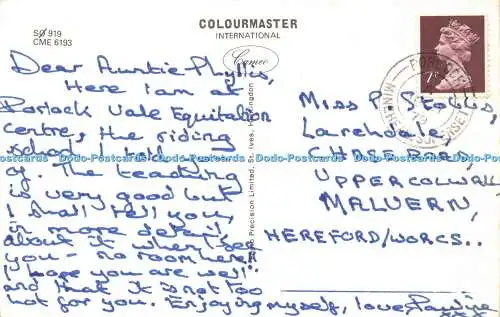 SØ 919
CME 6193
COLOURMASTER
INTERNATIONAL
Cameo
Dear Auntie Phyllis,
Here I am at
Porlock Vale Equitation
Centre, the riding
school I told you
of. The teaching
is very good but
I shall tell you,
in more detail,
about it when I see
you - no room here!
I hope you are well
and that it is not too
hot for you. Enjoying myself, love Pauline
xxx
Precision Limited, St. Ives, Huntingdon
Miss P.
Larchdale
UPPER COLWALL
MALVERN,
HEREFORD/WORCS..
MINEHEAD
SOMERSET
7
Postcards Dodo-Postcards Dodo-Postcards Dodo-Postcards Dodo-Postcards